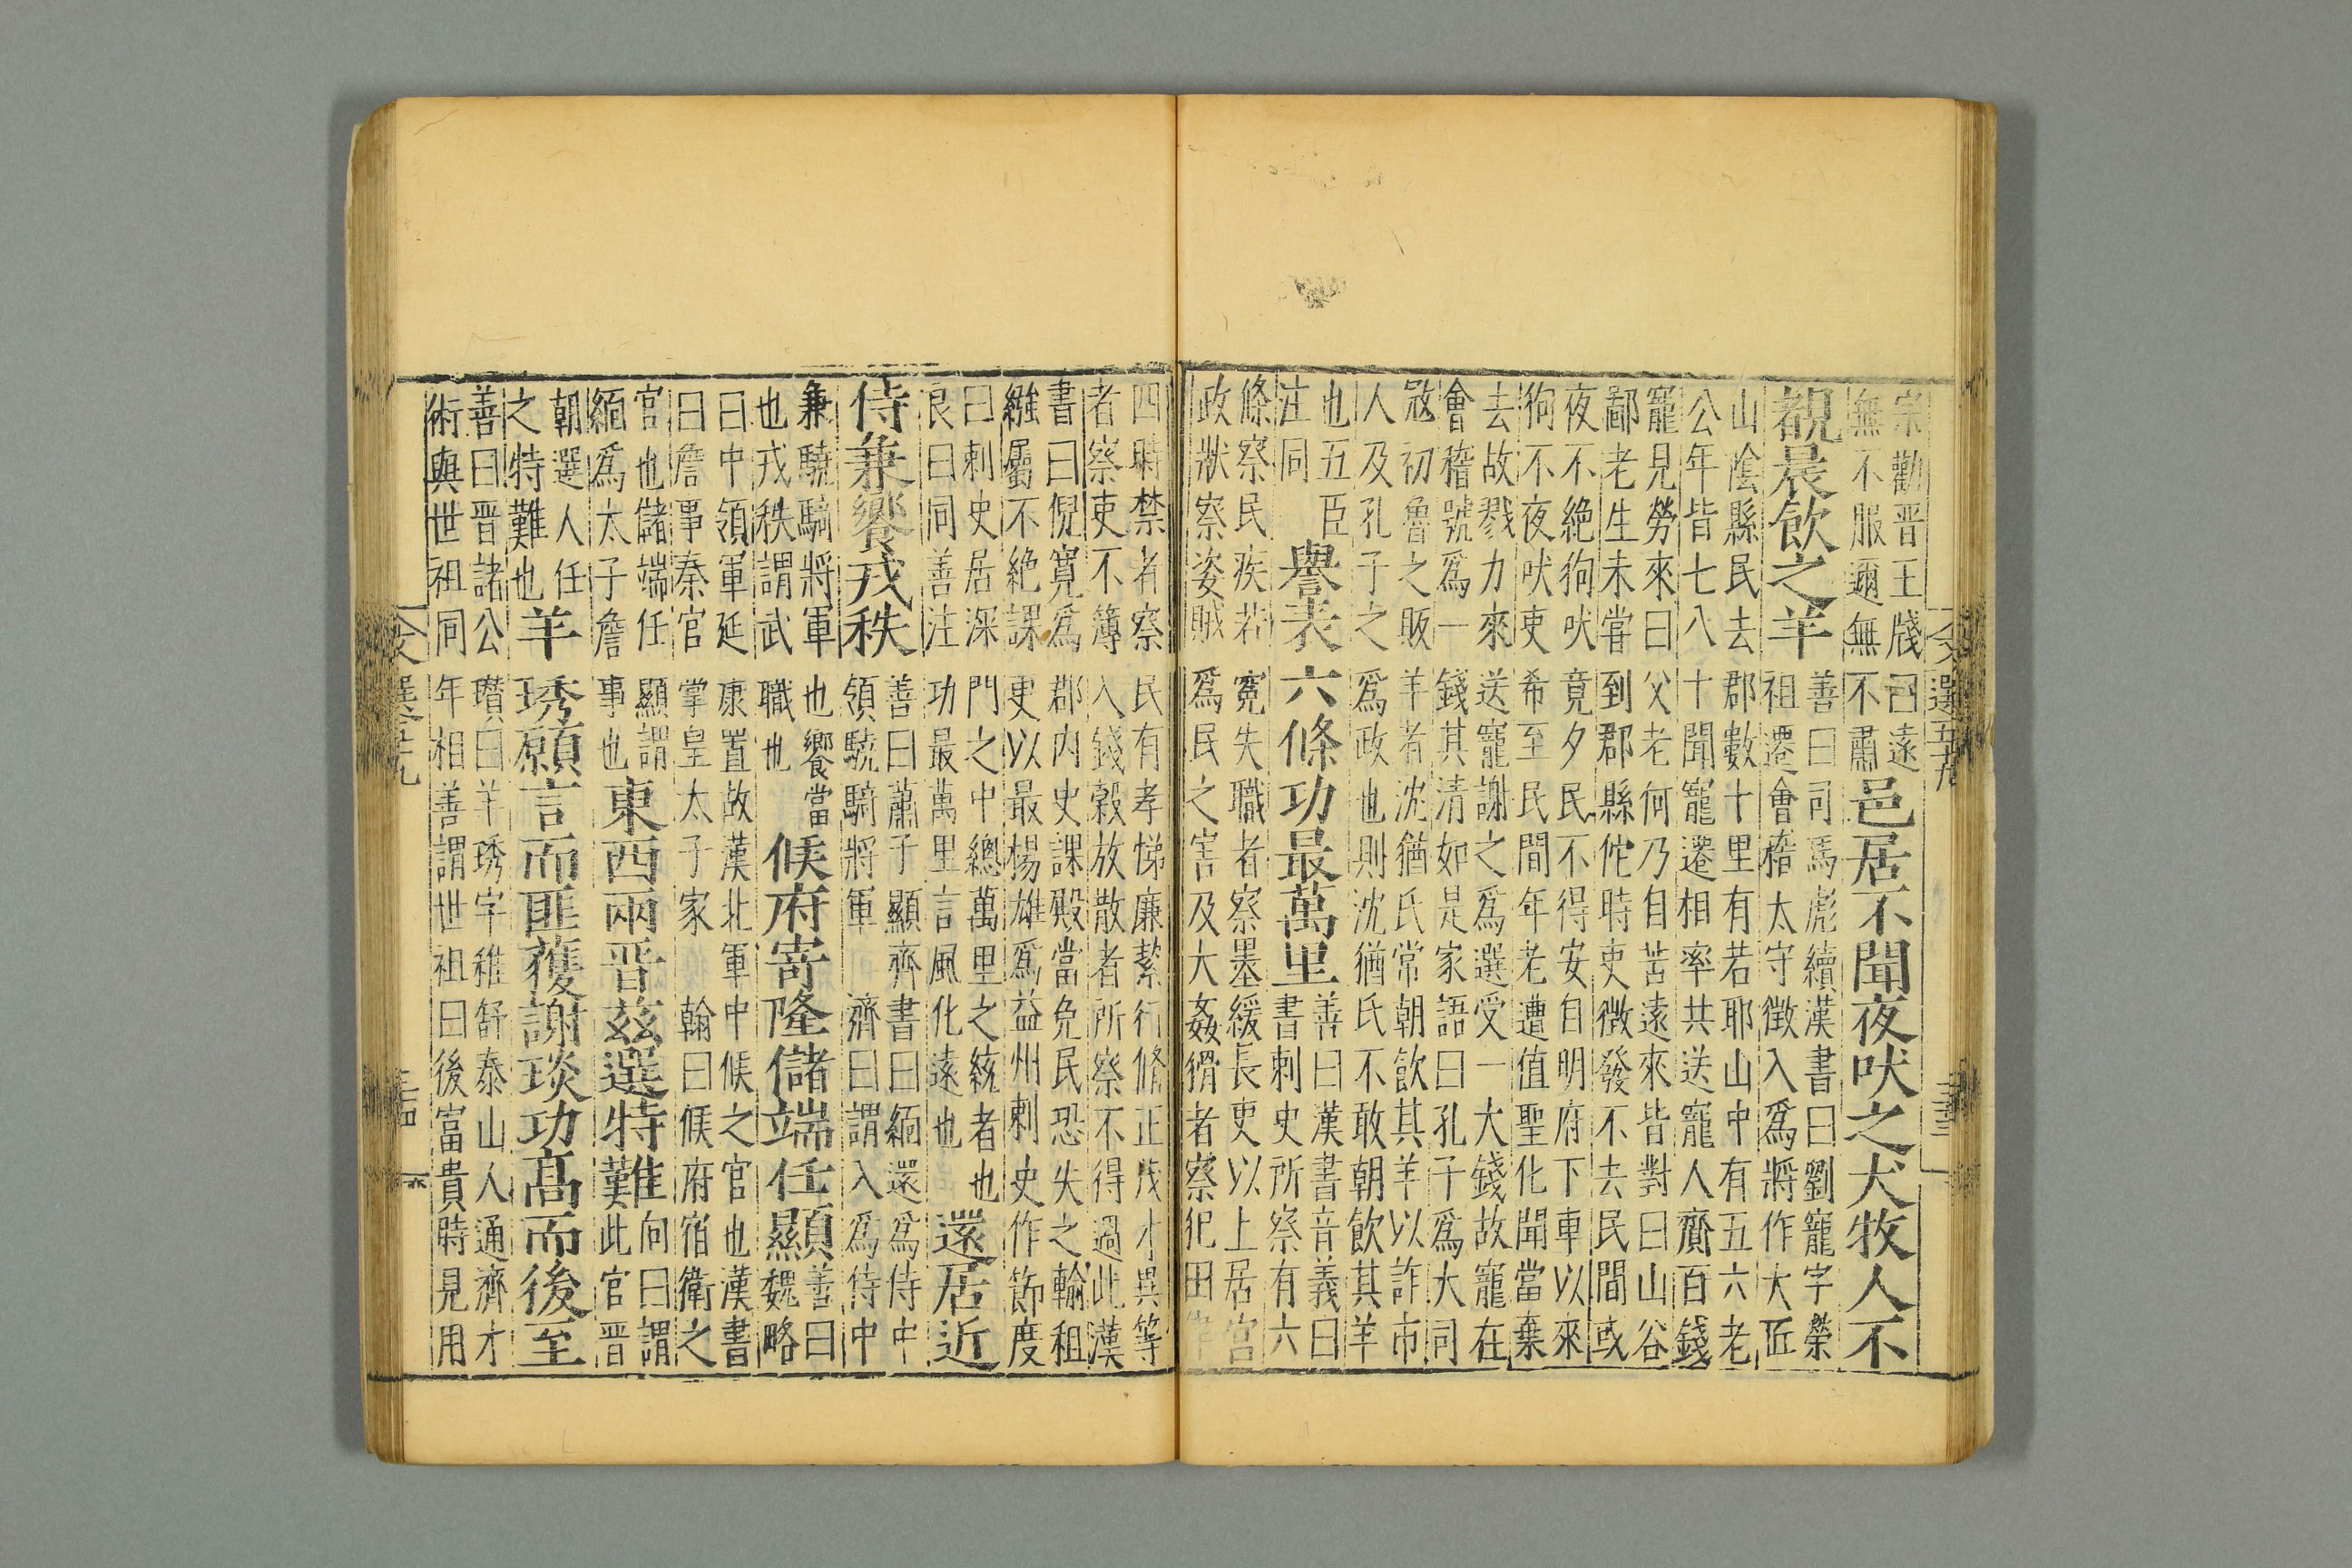 文選五十九
三十三
宗勸晋王牋曰遠
無不服邇無不肅
邑居不聞夜吠之犬牧人不
覩晨飲之羊
善曰司馬彪續漢書曰劉寵字榮
祖遷會稽太守徵入爲將作大匠
山陰縣民去郡數十里有若耶山中有五六老
公年皆七八十聞寵遷相率共送寵人齎百錢
寵見勞來曰父老何乃自苦遠來皆對曰山谷
鄙老生未甞到郡縣佗時吏徵發不去民間或
夜不絶狗吠竟夕民不得安自明府下車以來
狗不夜吠吏希至民間年老遭值聖化聞當棄
去故戮力來送寵謝之爲選受一大錢故寵在
會稽號爲一錢其清如是家語曰孔子爲大司
冦初魯之販羊者沈猶氏常朝飲其羊以詐市
人及孔子之爲政也則沈猶氏不敢朝飲其羊
也五臣
注同
譽表六條功最萬里
善曰漢書音義曰
書刺史所察有六
條察民疾若寃失職者察墨綬長吏以上居官
政狀察姿賊爲民之害及大姦猾者察犯田律
四時禁者察民有孝悌廉絜行脩正茂才異等
者察吏不簿入錢穀放散者所察不得過此漢
書曰倪寛爲郡内史課殿當免民恐失之輸租
繦屬不絶課更以最楊雄爲益州刺史作節度
曰刺史居深門之中總萬里之統者也
良曰同善注功最萬里言風化遠也
還居近
侍兼饗戎秩
善曰蕭子顯齊書曰緬還爲侍中
領驍騎將軍濟曰謂入爲侍中
兼驍騎將軍也饗當
也戎秩謂武職也
候府寄隆儲端任顯
善曰
魏略
曰中領軍延康置故漢北軍中候之官也漢書
曰詹事秦官掌皇太子家翰曰候府宿衛之
官也儲端任顯謂
緬爲太子詹事也
東西兩晋兹選特難
向曰謂
此官晋
朝選人任
之特難也
羊琇願言而匪獲謝琰功髙而後至
善曰晋諸公瓚曰羊琇字稚舒泰山人通濟才
術與世祖同年相善謂世祖曰後富貴時見用